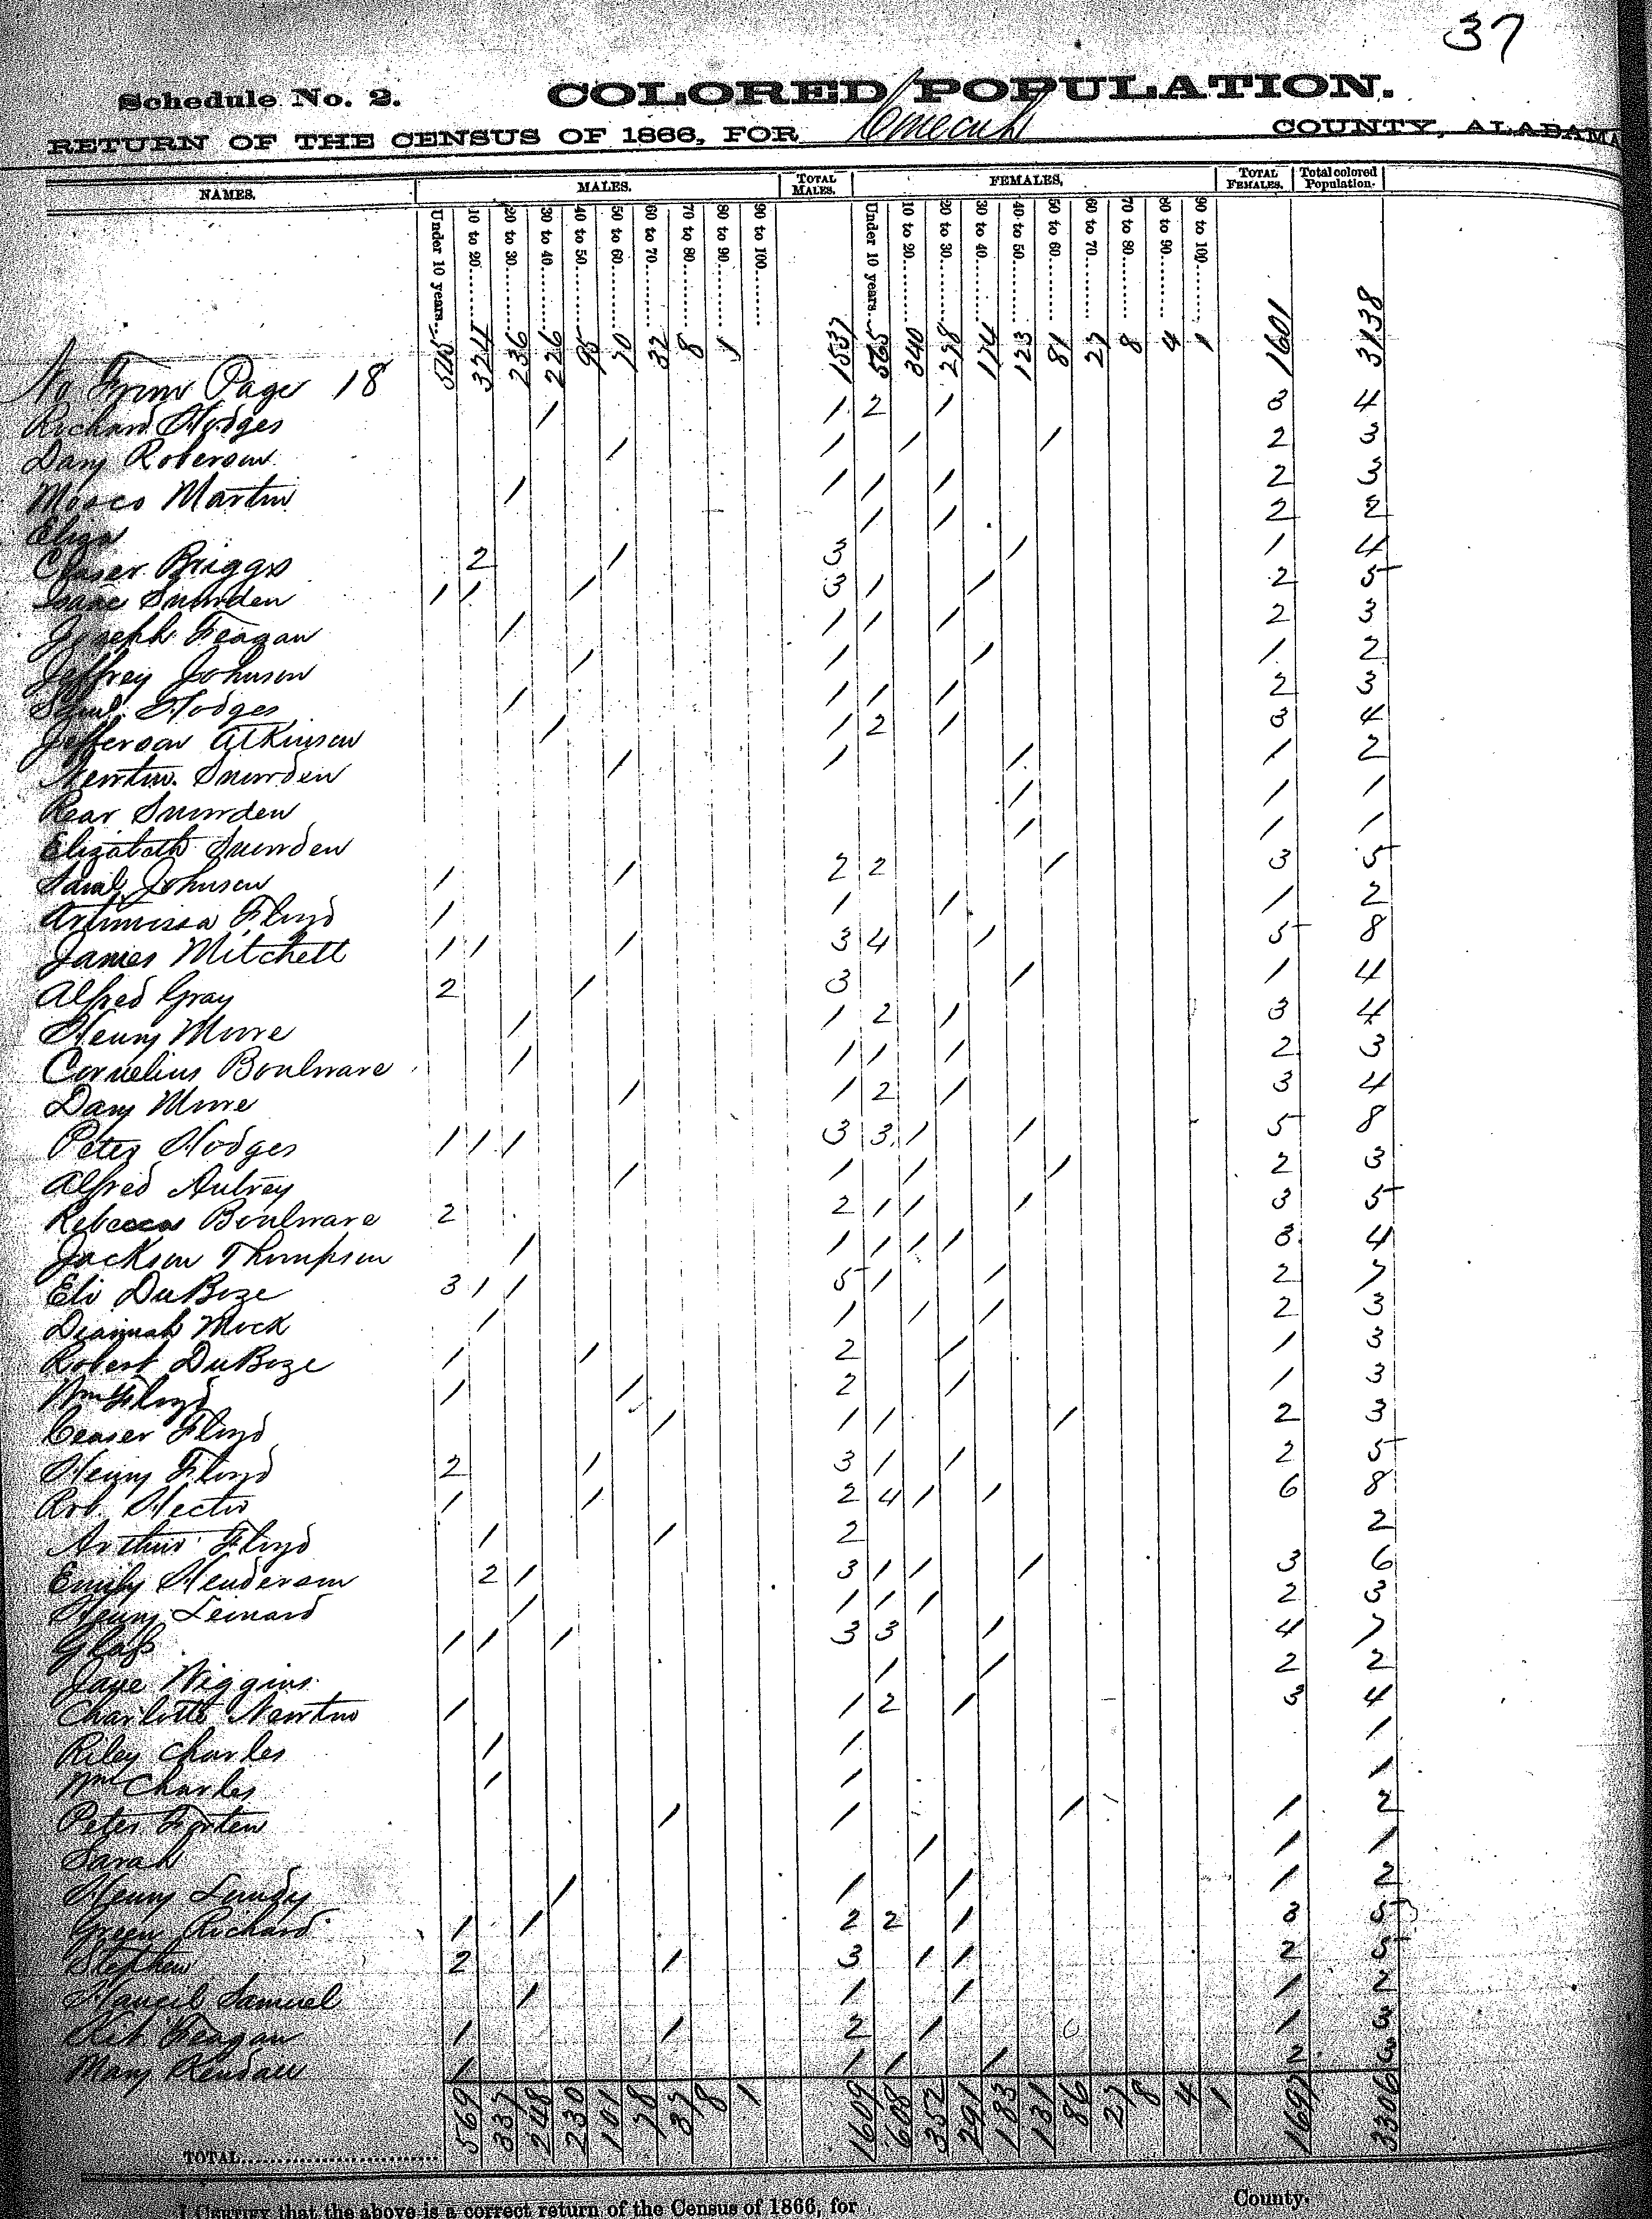 37
Schedule No. 2. COLORED POPULATION.
RETURN OF THE CENSUS OF 1866, FOR Conecuh COUNTY, ALABAMA
NAMES. MALES. TOTAL MALES. FEMALES. TOTAL FEMALES. Total colored Population.
Under 10 years 10 to 20 20 to 30 30 to 40 40 to 50 50 to 60 60 to 70 70 to 80 80 to 90 90 to 100 Under 10 years 10 to 20 20 to 30 30 to 40 40 to 50 50 to 60 60 to 70 70 to 80 80 to 90 90 to 100
No From Page 18 545 324 236 226 95 70 32 8 1 1537 565 340 278 174 123 81 27 8 4 1 1601 3138
Richard Hodges 1 1 2 1 3 4
Dany Roberson 1 1 1 1 2 3
Moses Martin 1 1 1 1 2 3
Eliza 1 1 2 2
Ceaser Briggs 2 1 3 1 1 4
Isaac Snowden 1 1 1 3 1 1 2 5
Joseph Feagan 1 1 1 1 2 3
Jeffrey Johnson 1 1 1 1 2
Saml Hodges 1 1 1 1 2 3
Jefferson Atkinson 1 1 2 1 3 4
Newton Snowden 1 1 1 1 2
Rear Snowden 1 1 1
Elizabeth Snowden 1 1 1
Saml Johnson 1 1 2 2 1 3 5
Artimissa Floyd 1 1 1 1 2
James Mitchell 1 1 1 3 4 1 5 8
Alfred Gray 2 1 3 1 1 4
Henry Moore 1 1 2 1 3 4
Cornelius Boulware 1 1 1 1 2 3
Dany Moore 1 1 2 1 3 4
Peter Hodges 1 1 1 3 3 1 1 5 8
Alfred Autrey 1 1 1 1 2 3
Rebecca Boulware 2 2 1 1 1 3 5
Jackson Thompson 1 1 1 1 1 3 4
Eli DuBoze 3 1 1 5 1 1 2 7
Mock 1 1 1 1 2 3
Robert DuBoze 1 1 2 1 1 3
Wm Floyd 1 1 2 1 1 3
Ceaser Floyd 1 1 1 1 2 3
Henry Floyd 2 1 3 1 1 2 5
Rob. Hector 1 1 2 4 1 1 6 8
Arthur Floyd 1 1 2 2
Emily Henderson 2 1 3 1 1 1 3 6
Henry Leinard 1 1 1 1 2 3
Glass 1 1 1 3 3 1 4 7
Jane Wiggins 1 1 2 2
Charlotte Newton 1 1 2 1 3 4
Riley Charles 1 1 1
Wm Charles 1 1 1
Peter Forten 1 1 1 1 2
Sarah 1 1 1
Henry Lundy 1 1 1 1 2
Green Richard 1 1 2 2 1 3 5
Stephen 2 1 3 1 1 2 5
Samuel 1 1 1 1 2
Feagan 1 1 2 1 1 3
Mary Kendall 1 1 1 1 2 3
TOTAL 569 337 248 230 101 78 37 8 1 1609 608 352 291 183 131 86 27 8 4 1 1697 3306
I CERTIFY that the above is a correct return of the Census of 1866, for County.